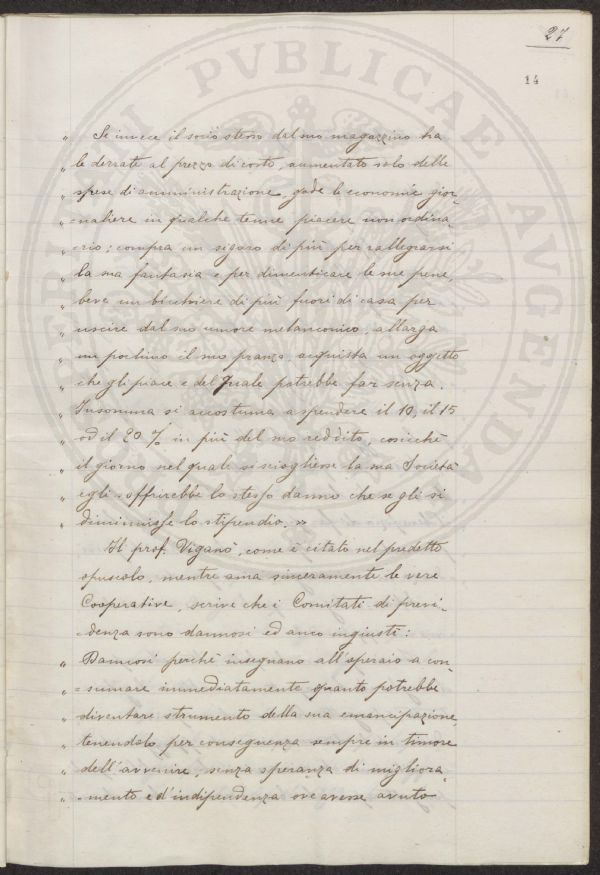 27
14
" Se invece il socio stesso dal suo magazzino ha
" le derrate al prezzo di costo, aumentato solo delle
" spese di amministrazione, gode le economie gior-
" =naliere in qualche tenue piacere non ordina-
" =rio; compra un sigaro di più per rallegrarsi
" la sua fantasia e per dimenticare le sue pene,
" beve un bicchiere di più fuori di casa per
" uscire dal suo umore melanconico, allarga
" un pochino il suo pranzo acquista un oggetto
" che gli piace e del quale potrebbe far senza.
" Insomma si accostuma a spendere il 10, il 15
" od il 20 % in più del suo reddito, cosicchè
" il giorno nel quale si sciogliesse la sua Società
" egli soffrirebbe lo stesso danno che se gli si
" diminuisse lo stipendio. »
Il prof. Viganò, come è citato nel predetto
opuscolo, mentre ama sinceramente le vere
Cooperative, scrive che i Comitati di previ-
-denza sono dannosi ed anco ingiusti:
" Dannosi perchè insegnano all'operaio a con-
" =sumare immediatamente quanto potrebbe
" diventare strumento della sua emancipazione,
" tenendolo per conseguenza sempre in timore
" dell'avvenire, senza speranza di migliora-
" -mento e d'indipendenza ove avesse avuto
PVBLICAE AVGENDAE